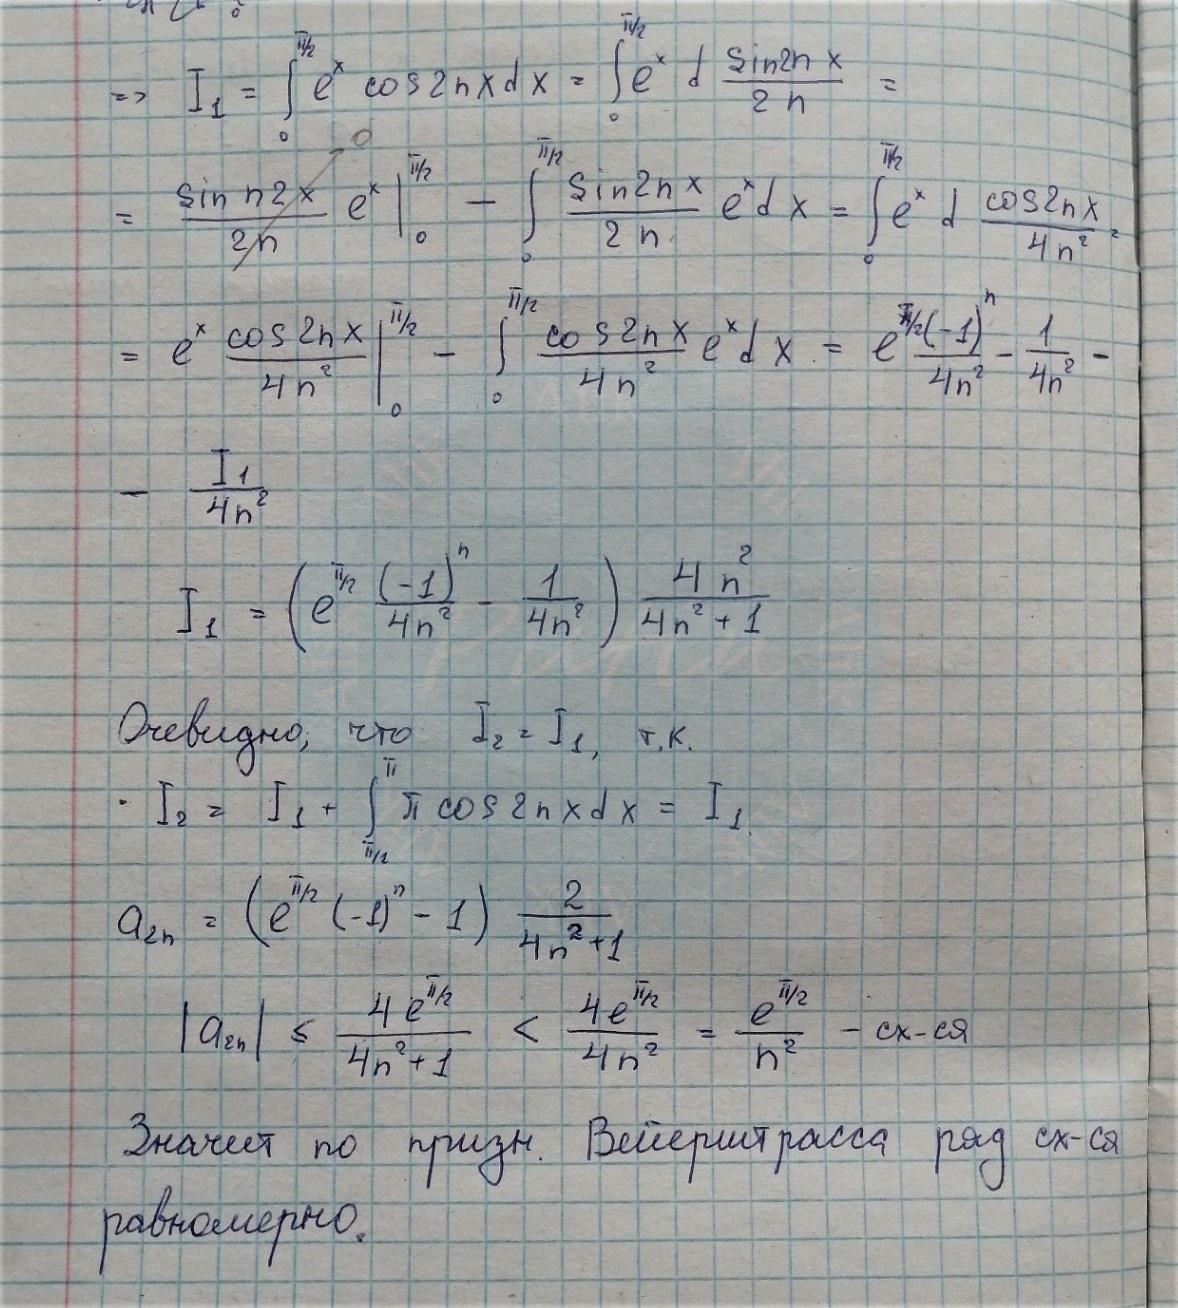 => I₁ = ∫₀^{π/2} eˣ cos2nx dx = ∫₀^{π/2} eˣ d (sin2nx)/(2n) =
= (sin n2x)/(2n) eˣ |₀^{π/2} → 0 − ∫₀^{π/2} (sin2nx)/(2n) eˣ dx = ∫₀^{π/2} eˣ d (cos2nx)/(4n²) =
= eˣ (cos2nx)/(4n²) |₀^{π/2} − ∫₀^{π/2} (cos2nx)/(4n²) eˣ dx = e^{π/2} (-1)ⁿ/(4n²) − 1/(4n²) −
− I₁/(4n²)
I₁ = (e^{π/2} (-1)ⁿ/(4n²) − 1/(4n²)) 4n²/(4n²+1)
Очевидно, что I₂ = I₁, т.к.
I₂ = I₁ + ∫_{π/2}^{π} π cos2nx dx = I₁
a₂ₙ = (e^{π/2} (-1)ⁿ − 1) 2/(4n²+1)
|a₂ₙ| ≤ 4e^{π/2}/(4n²+1) < 4e^{π/2}/(4n²) = e^{π/2}/n² − сх-ся
Значит по призн. Вейерштрасса ряд сх-ся
равномерно.